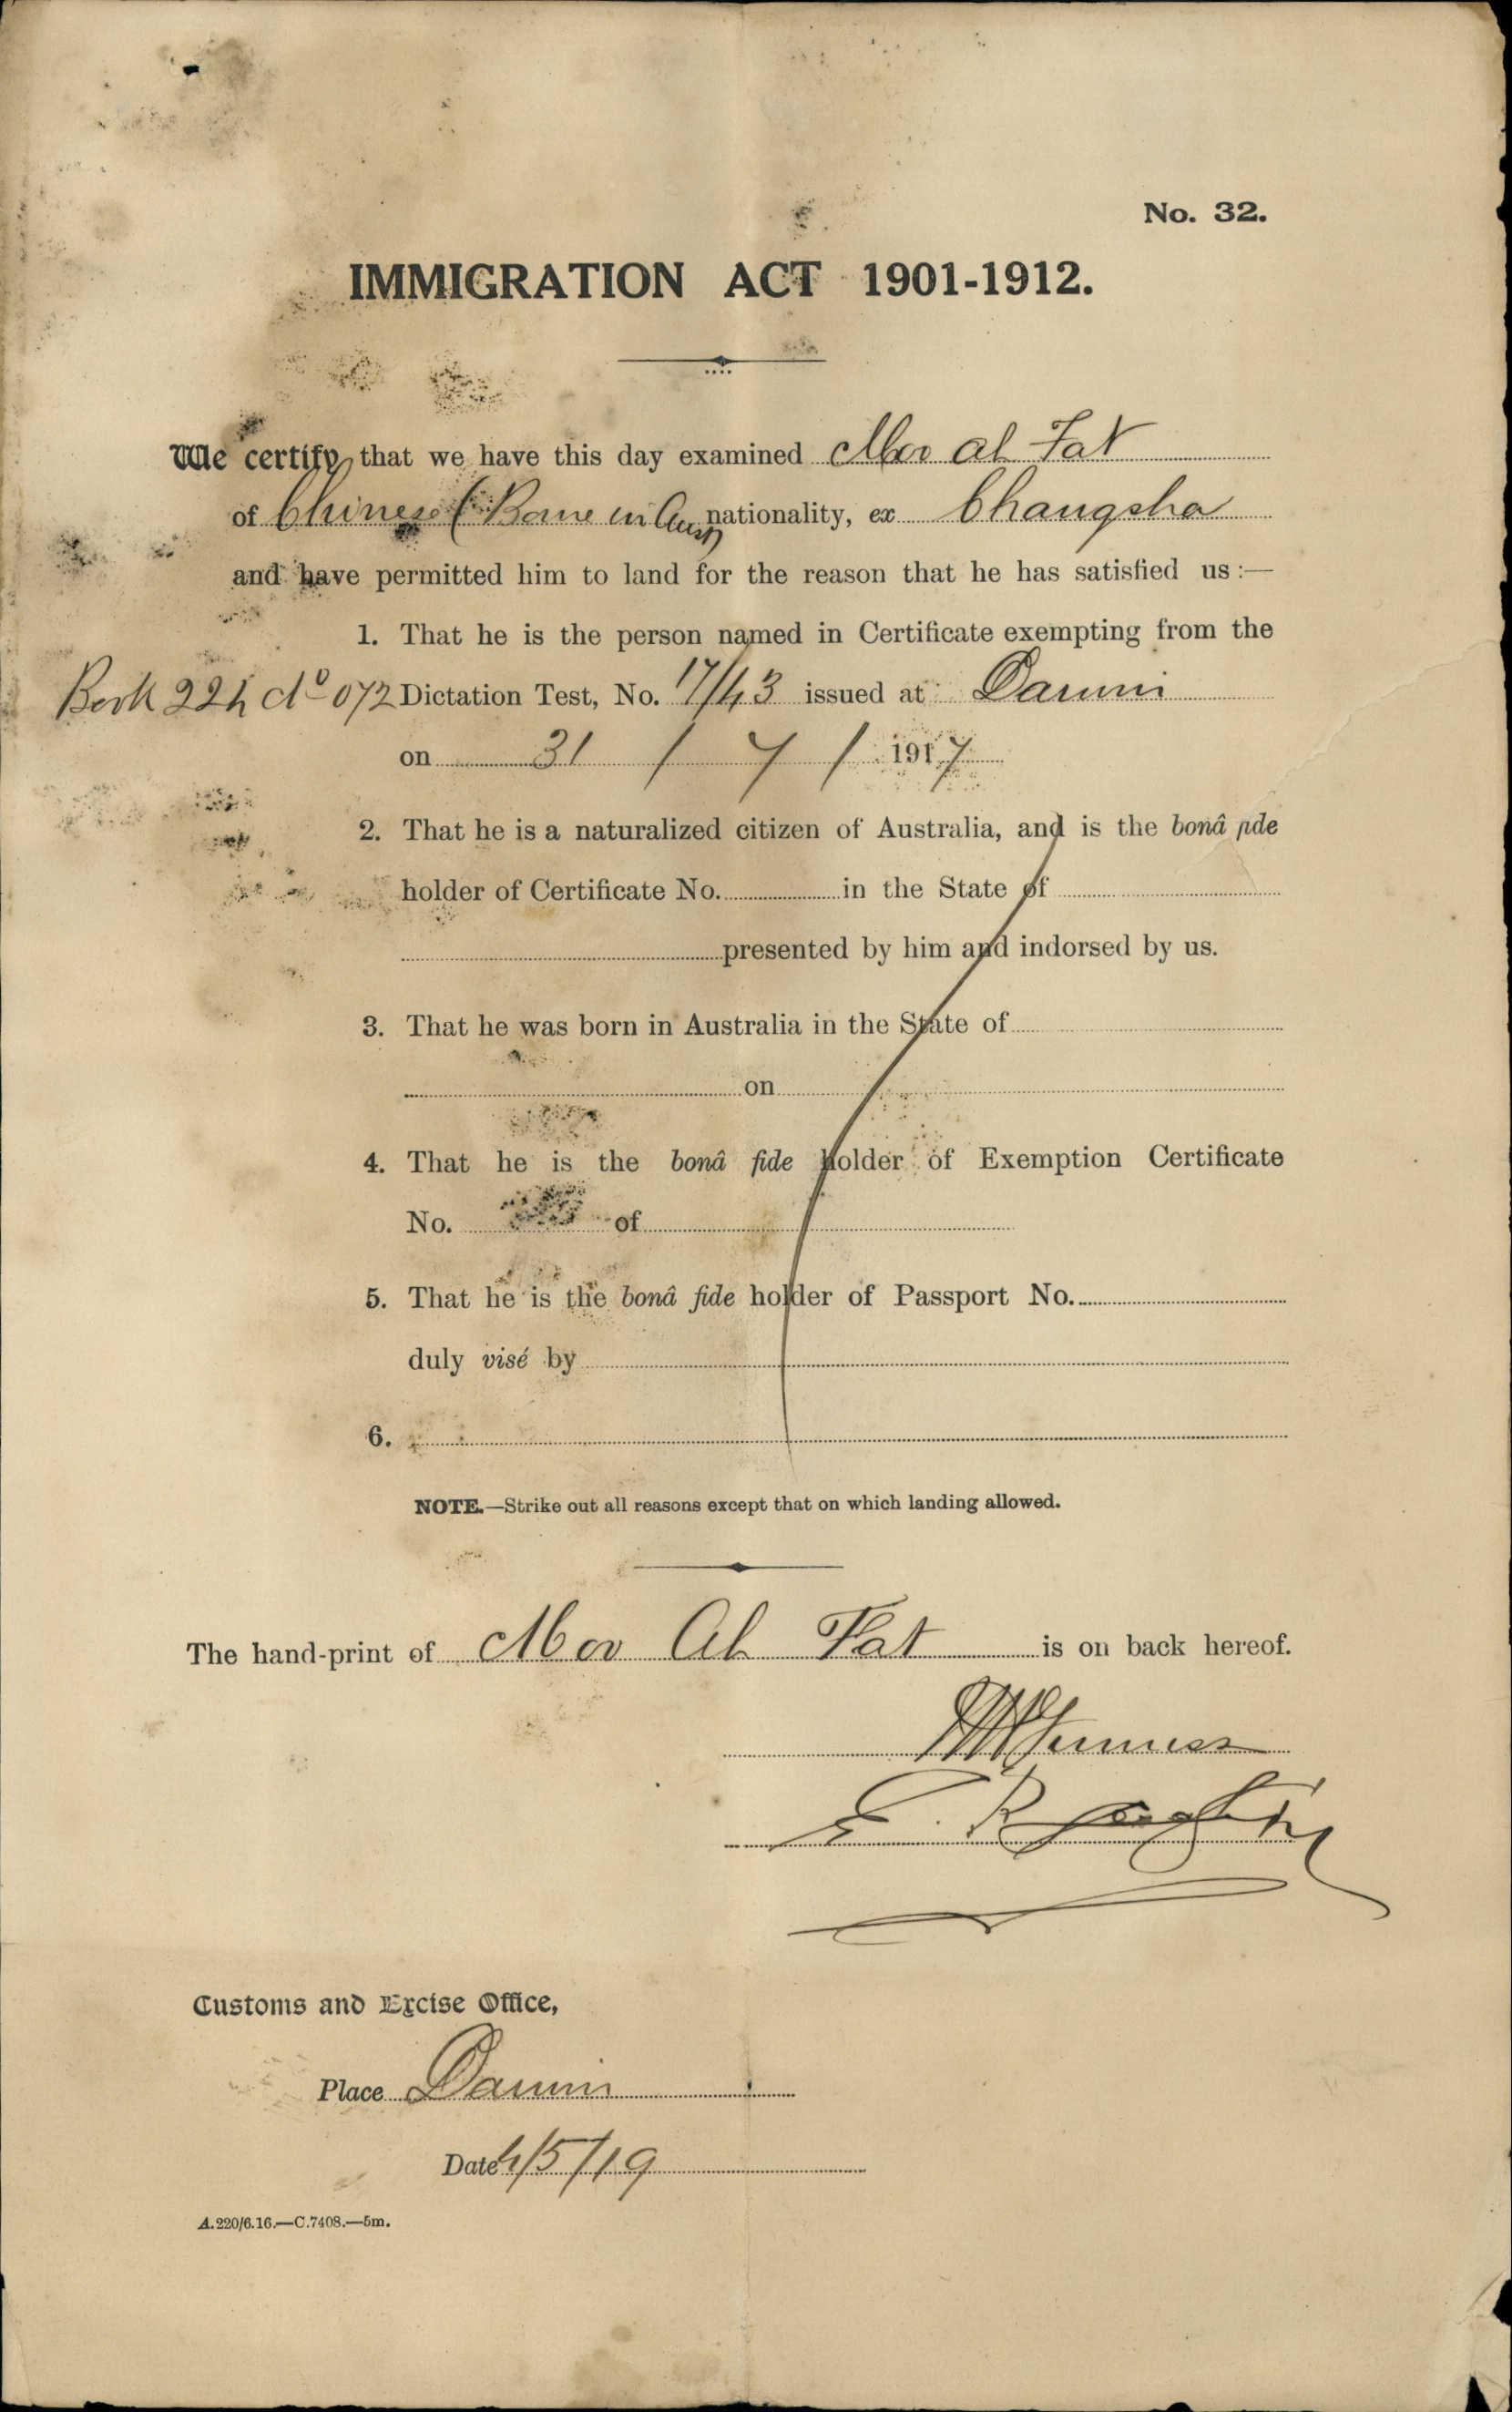 No. 32.
IMMIGRATION ACT 1901-1912.
We certify that we have this day examined Moo Ah Fat
of Chinese (Borne in Aus) nationality, ex Changsha
and have permitted him to land for the reason that he has satisfied us :—
1. That he is the person named in Certificate exempting from the
Book 224 No 072 Dictation Test, No. 17/43 issued at Darwin
on 31 / 7 / 1917
2. That he is a naturalized citizen of Australia, and is the bonâ fide
holder of Certificate No. in the State of
presented by him and indorsed by us.
3. That he was born in Australia in the State of
on
4. That he is the bonâ fide holder of Exemption Certificate
No. of
5. That he is the bonâ fide holder of Passport No.
duly visé by
6.
NOTE.—Strike out all reasons except that on which landing allowed.
The hand-print of Moo Ah Fat is on back hereof.
Customs and Excise Office,
Place Darwin
Date 4/5/19
A.220/6.16.—C.7408.—5m.